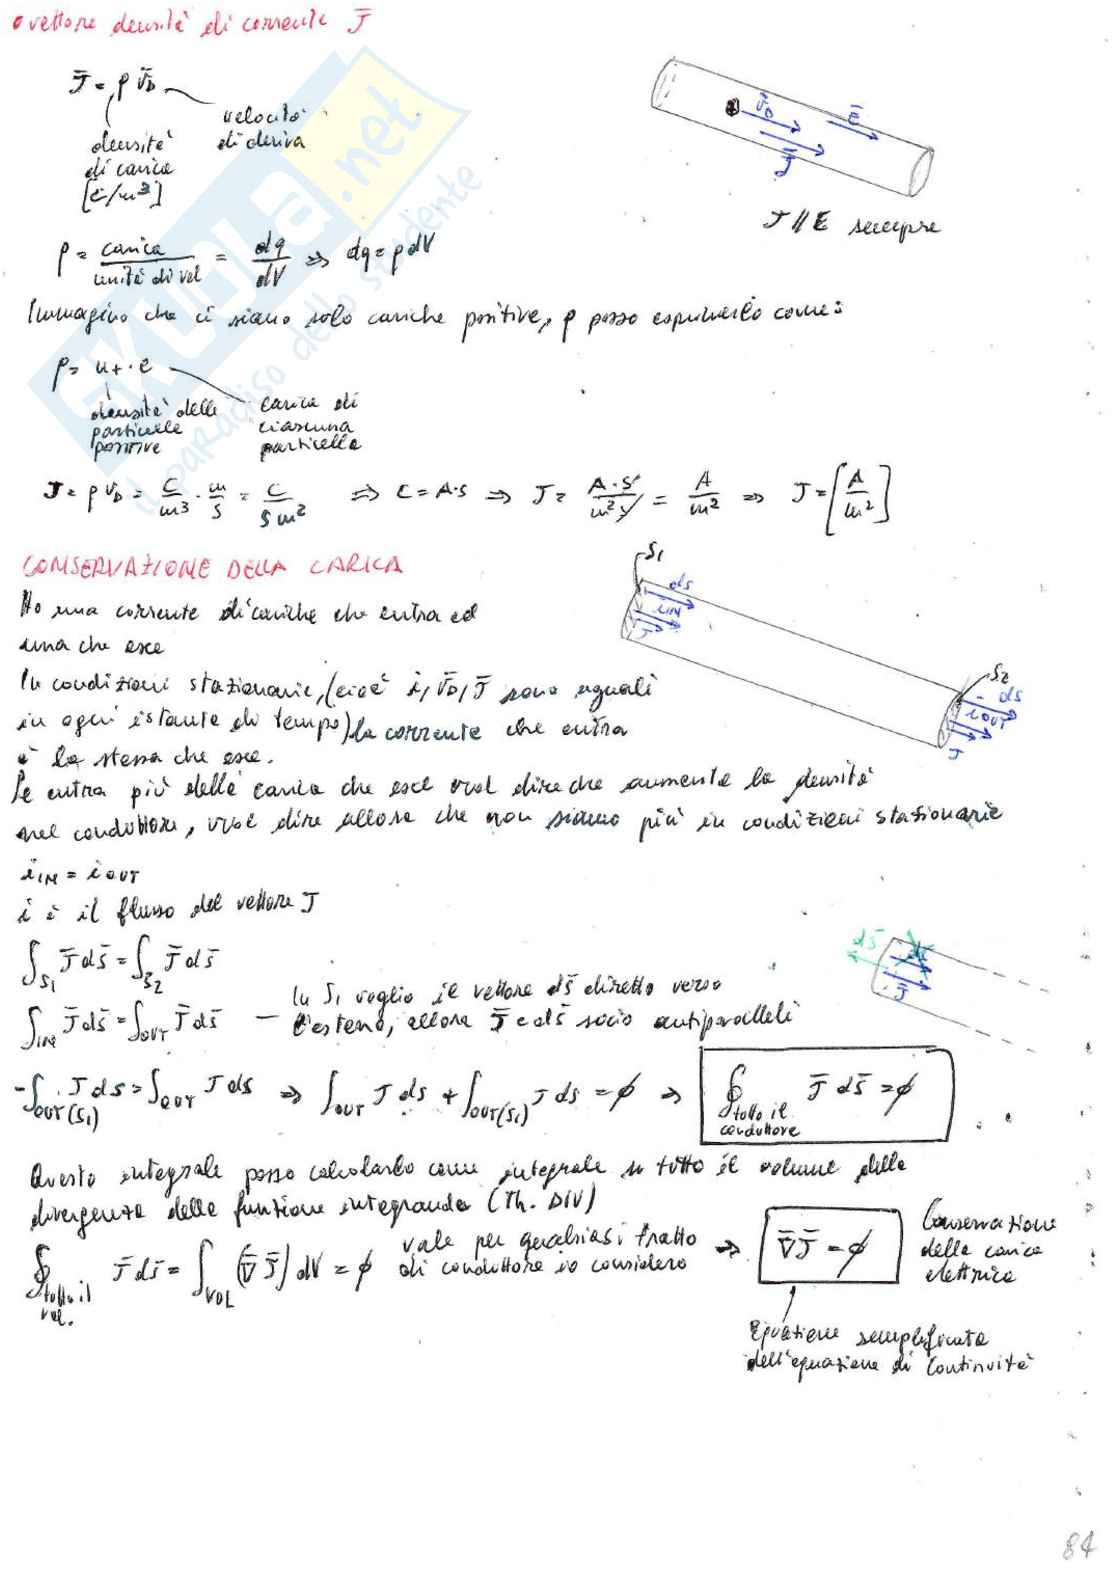 • vettore densità di corrente J̄
J̄ = ρ v̄D
velocità di deriva
densità di carica [C/m³]
v̄D
Ē
J̄
J // E sempre
ρ = carica / unità di vol = dq / dV ⇒ dq = ρ dV
Immagino che ci siano solo cariche positive, ρ posso esprimerlo come:
ρ = n+ · e
densità delle particelle positive
carica di ciascuna particella
J = ρ vD = C/m³ · m/s = C/s m² ⇒ C = A·s ⇒ J = A·s/m² s = A/m² ⇒ J = [A/m²]
CONSERVAZIONE DELLA CARICA
S1
ds
iIN
J
S2
ds
iOUT
J
Ho una corrente di cariche che entra ed
una che esce
In condizioni stazionarie, (cioè i, v̄D, J̄ sono uguali
in ogni istante di tempo) la corrente che entra
è la stessa che esce.
Se entra più della carica che esce vuol dire che aumenta la densità
nel conduttore, vuol dire allora che non siamo più in condizioni stazionarie
iIN = iOUT
i è il flusso del vettore J
∫S1 J̄ ds̄ = ∫S2 J̄ ds̄
∫IN J̄ ds̄ = ∫OUT J̄ ds̄ — In S1 voglio il vettore ds̄ diretto verso
l'esterno, allora J̄ e ds̄ sono antiparalleli
ds̄
ds̄
J̄
-∫OUT(S1) J ds = ∫OUT J ds ⇒ ∫OUT J ds + ∫OUT(S1) J ds = ∅ ⇒ ∮tutto il conduttore J̄ ds̄ = ∅
Questo integrale posso calcolarlo come integrale su tutto il volume della
divergenza della funzione integranda (Th. DIV)
∮tutto il vol. J̄ ds̄ = ∫VOL (∇̄ J̄) dV = ∅ vale per qualsiasi tratto di conduttore io considero ⇒ ∇̄ J̄ = ∅
Conservazione della carica elettrica
Equazione semplificata
dell'equazione di continuità
84
SKUOLA.net
il paradiso dello studente